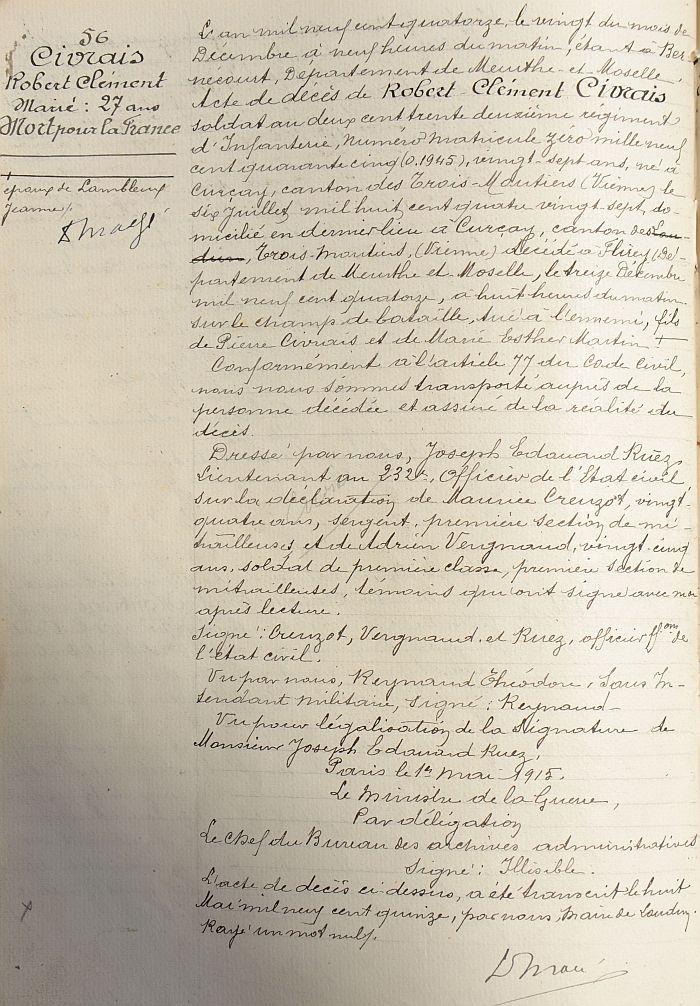 56
Civrais
Robert Clément
Marié : 27 ans
Mort pour la France
+
époux de Lambleux
Jeanne
L'an mil neuf cent quatorze, le vingt du mois de
Décembre à neuf heures du matin, étant à Ber-
necourt, Département de Meurthe-et-Moselle.
Acte de décès de Robert-Clément Civrais
soldat au deux cent trente deuxième régiment
d'Infanterie, Numéro Matricule zéro mille neuf
cent quarante cinq (0.1945), vingt-sept ans, né à
Curçay, canton des Trois-Moutiers (Vienne) le
six Juillet, mil huit cent quatre vingt sept, do-
micilié en dernier lieu à Curçay, canton des Lou-
dun, Trois-Moutiers, (Vienne) décédé à Flirey (Dé-
partement de Meurthe et Moselle, le treize Décembre
mil neuf cent quatorze, à huit heures du matin
sur le champ de bataille, tué à l'ennemi, fils
de Pierre Civrais et de Marie Esther Martin +
Conformément à l'article 77 du Code Civil,
nous nous sommes transporté auprès de la
personne décédée et assuré de la réalité du
décès.
Dressé par nous, Joseph Edouard Ruez,
Lieutenant au 232e, Officier de l'Etat civil
sur la déclaration de Maurice Creuzot, vingt-
quatre ans, sergent, première section de mi-
trailleuses et de Adrien Vergnaud, vingt-cinq
ans, soldat de première classe, première section de
mitrailleuses, témoins qui ont signé avec moi
après lecture.
Signé : Creuzot, Vergnaud, et Ruez, officier ffons de
l'état civil.
Vu par nous, Reynaud Théodore, Sous In-
tendant militaire, signé : Reynaud-
Vu pour légalisation de la signature de
Monsieur Joseph Edouard Ruez,
Paris le 1er Mai 1915.
Le Ministre de la Guerre,
Par délégation
Le Chef du Bureau des archives administratives
Signé : Illisible.
L'acte de décès ci-dessus, a été transcrit le huit
Mai mil neuf cent quinze, par nous, Maire de Loudun.
Rayé un mot nul.